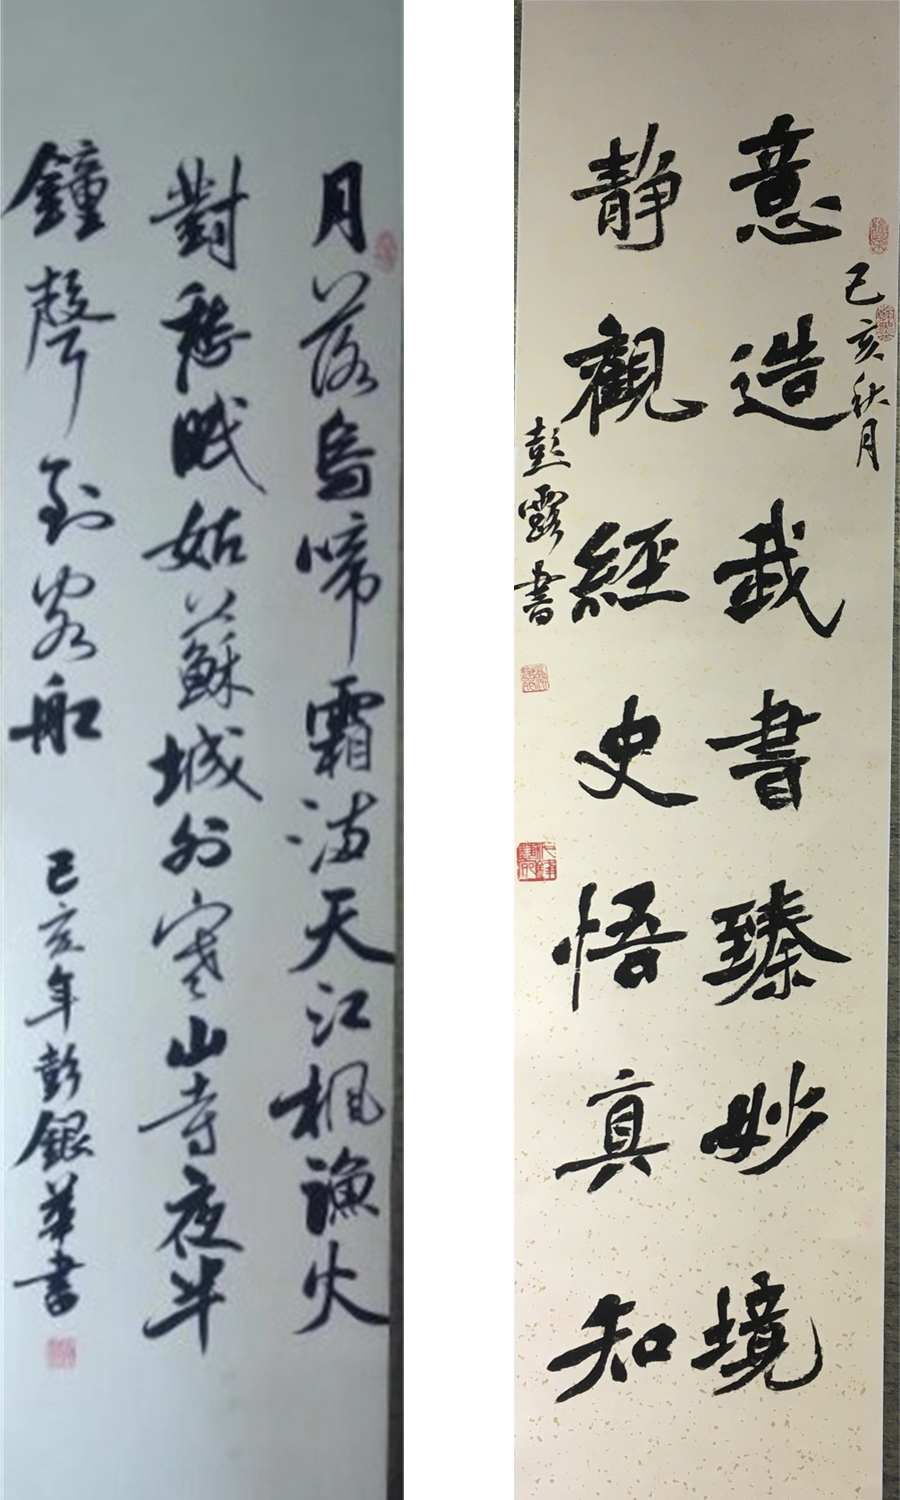 月落烏啼霜滿天江楓漁火
對愁眠姑蘇城外寒山寺夜半
鐘聲到客船
己亥年彭銀華書
己亥秋月
意造我書臻妙境
静觀經史悟真知
彭露書